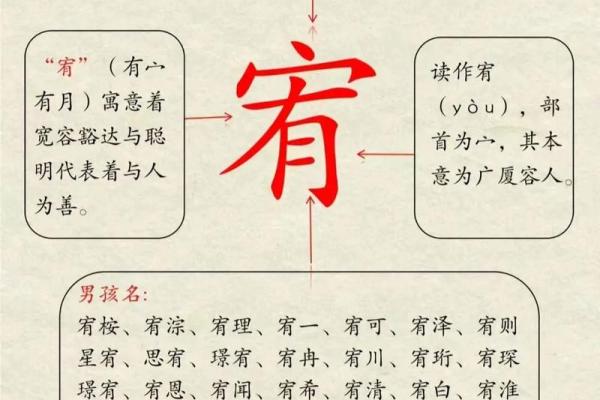 “宥”（有宀
有月）寓意着
宽容豁达与聪
明代表着与人
为善。
宥
读作宥
（yòu），部
首为宀，其本
意为广厦容人。
男孩名:
宥桉、宥淙、宥理、宥一、宥可、宥泽、宥则
星宥、思宥、璟宥、宥冉、宥川、宥珩、宥琛
璟宥、宥恩、宥闻、宥希、宥清、宥白、宥淮